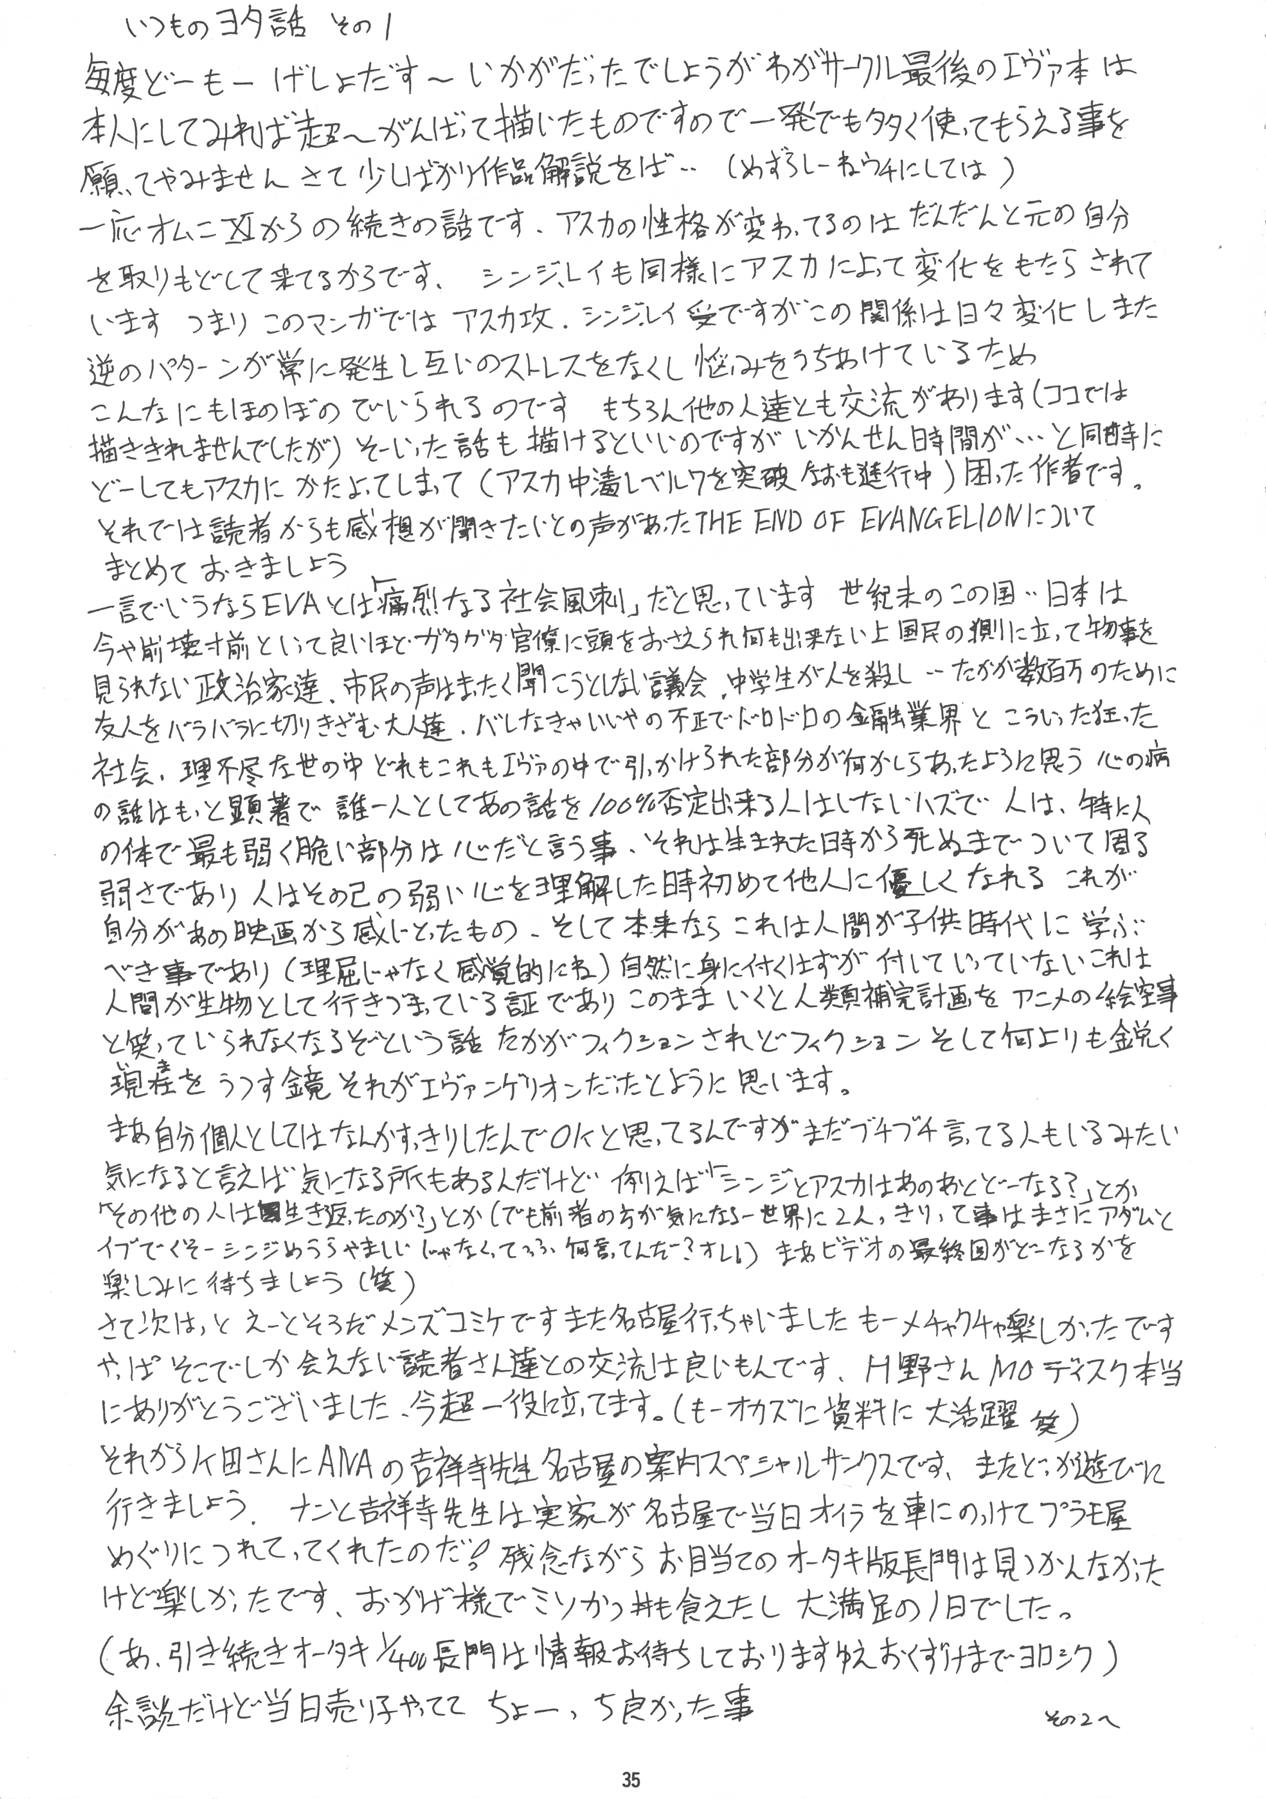 いつものヨタ話 その1
毎度どーもー げしょだす〜 いかがだったでしょうが わがサークル最後のエヴァ本は
本人にしてみれば超〜がんばって描いたものですので 一発でも多く使ってもらえる事を
願ってやみません さて 少しばかり作品解説をば‥ (めずらしーねウチにしては)
一応オムニⅪからの続きの話です、アスカの性格が変わってるのは だんだんと元の自分
を取りもどして来てるからです、 シンジ、レイも同様にアスカによって変化をもたらされて
います つまりこのマンガでは アスカ攻、シンジ、レイ受ですが この関係は日々変化しまた
逆のパターンが常に発生し互いのストレスをなくし悩みをうちあけているため
こんなにもほのぼのでいられるのです もちろん他の人達とも交流があります(ココでは
描ききれませんでしたが)そーいった話も描けるといいのですが いかんせん時間が…と同時に
どーしてもアスカに かたよってしまって (アスカ中毒レベル7を突破 なおも進行中)困った作者です。
それでは読者からも感想が聞きたいとの声があったTHE END OF EVANGELIONについて
まとめておきましょう
一言でいうならEVAとは「痛烈なる社会風刺」だと思っています 世紀末のこの国‥日本は
今や崩壊寸前といって良いほどガタガタ官僚に頭をおさえられ何も出来ない上国民の側に立って物事を
見られない政治家達、市民の声はまったく聞こうとしない議会、中学生が人を殺し‥たかが数百万のために
友人をバラバラに切りきざむ大人達、バレなきゃいいやの不正でドロドロの金融業界とこういった狂った
社会、理不尽な世の中 どれもこれもエヴァの中で引っかけられた部分が何かしらあったように思う 心の病
の話はもっと顕著で 誰一人としてあの話を100%否定出来る人はいないハズで 人は、特に人
の体で最も弱く脆い部分は心だと言う事、それは生まれた時から死ぬまでついて周る
弱さであり 人はその己の弱い心を理解した時初めて他人に優しくなれる これが
自分があの映画から感じとったもの、そして本来なら これは人間が子供時代に学ぶ
べき事であり(理屈じゃなく感覚的にね)自然に身に付くはずが 付いていっていないこれは
人間が生物として行きづまっている証であり このままいくと人類補完計画をアニメの絵空事
と笑っていられなくなるぞという話 たかがフィクションされどフィクション そして何よりも鋭く
現在をうつす鏡 それがエヴァンゲリオンだったように思います。
まあ自分個人としてはなんかすっきりしたんでOKと思ってるんですがまだブチブチ言ってる人もいるみたい
気になると言えば気になる所もあるんだけど 例えば「シンジとアスカはあのあとどーなる?」とか
「その他の人は生き返ったのか?」とか(でも前者の方が気になるー世界に2人っきりって事はまさにアダムと
イブでくそーシンジめうらやましい じゃなくってっふ、何言ってんだー?オレ!) まあビデオの最終回がどーなるかを
楽しみに待ちましょう(笑)
さて次はっと えーとそうだ メンズコミケです また名古屋行っちゃいました もーメチャクチャ楽しかったです
やっぱ そこでしか会えない読者さん達との交流は良いもんです、H野さんMOディスク本当
にありがとうございました、今超一役に立ってます。(もーオカズに資料に大活躍 笑)
それからK田さんにANAの吉祥寺先生名古屋の案内スペシャルサンクスです、またどっか遊びに
行きましょう、 ナンと吉祥寺先生は実家が名古屋で当日オイラを車にのっけてプラモ屋
めぐりにつれてってくれたのだ! 残念ながらお目当てのオータキ版長門は見つかんなかった
けど楽しかったです、おかげ様でミソかつ丼も食えたし 大満足の1日でした。
(あ、引き続きオータキ1/400長門は情報お待ちしておりますゆえおくずけまでヨロシク)
余談だけど当日売り子やってて ちょーっち良かった事
その2へ
35